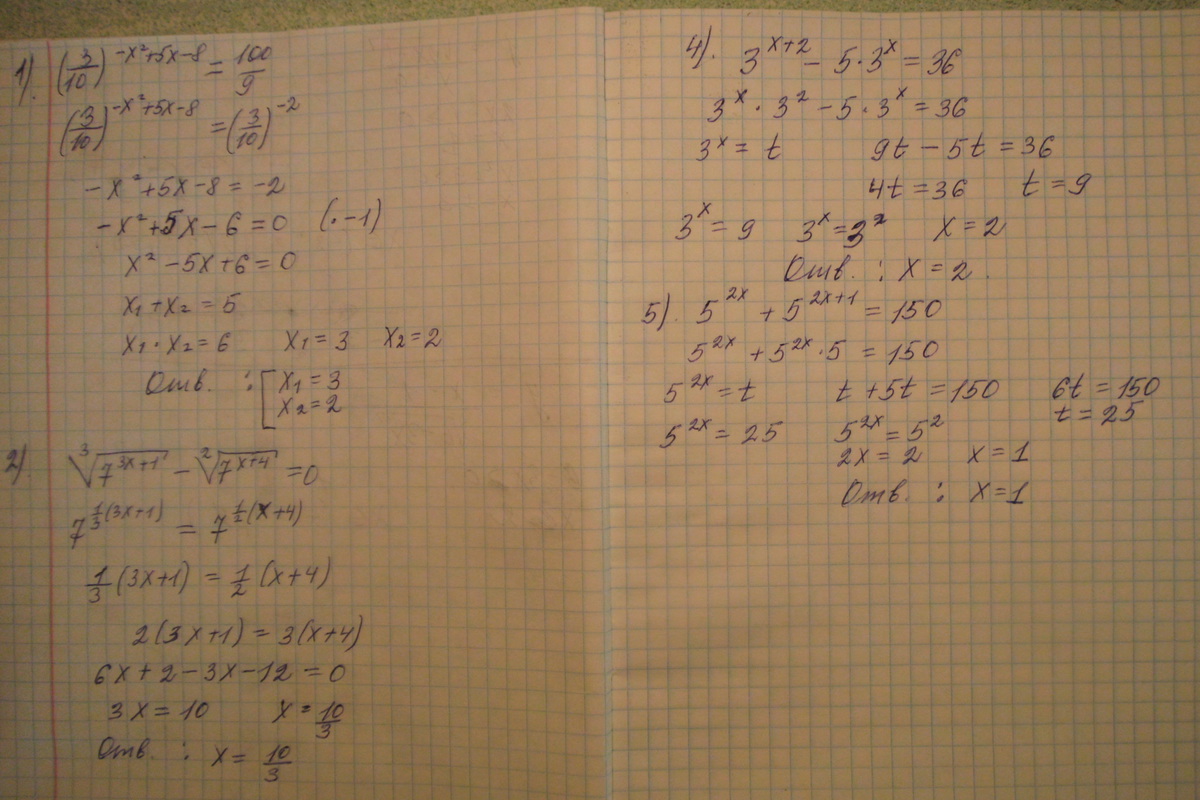 1). (3/10)^(-x²+5x-8) = 100/9
(3/10)^(-x²+5x-8) = (3/10)^(-2)
-x²+5x-8 = -2
-x²+5x-6=0 (·-1)
x²-5x+6=0
x₁+x₂=5
x₁·x₂=6 x₁=3 x₂=2
Отв. : [x₁=3
x₂=2
2). ³√(7^(3x+1)) - ²√(7^(x+4)) =0
7^(1/3(3x+1)) = 7^(1/2(x+4))
1/3(3x+1) = 1/2(x+4)
2(3x+1) = 3(x+4)
6x+2-3x-12=0
3x=10 x=10/3
Отв. : x=10/3
4). 3^(x+2) - 5·3^x = 36
3^x·3² - 5·3^x = 36
3^x = t 9t-5t=36
4t=36 t=9
3^x=9 3^x=3² x=2
Отв. : x=2.
5). 5^(2x) + 5^(2x+1) = 150
5^(2x) + 5^(2x)·5 = 150
5^(2x)=t t+5t=150 6t=150
t=25
5^(2x)=25 5^(2x)=5²
2x=2 x=1
Отв. : x=1